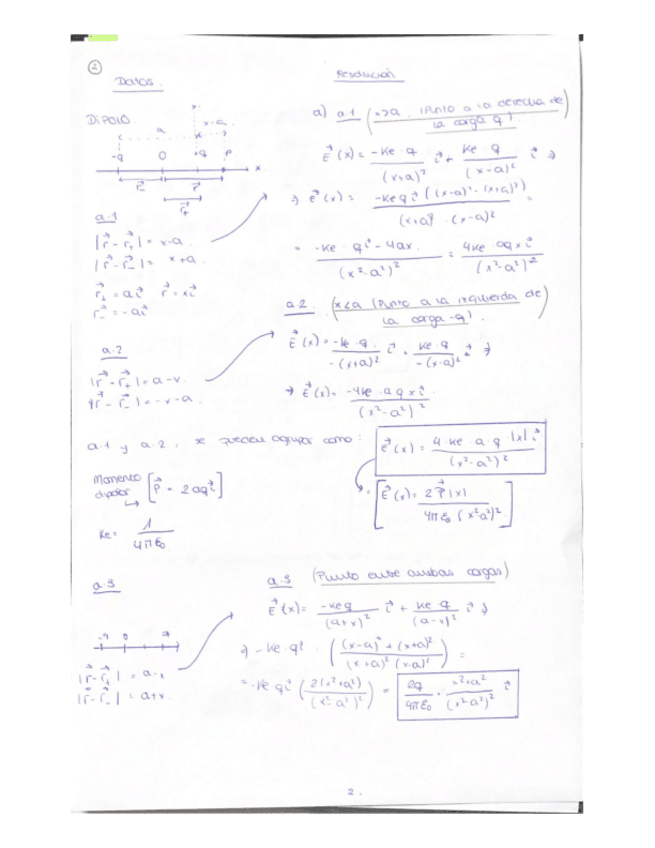 1
Datos.
Resolución
DIPOLO.
a) a.1 (x>a. (Punto a la derecha de
la carga q)
x-a
a
-q 0 +q P x
E(x) = -Ke·q/(x+a)² i + Ke q/(x-a)² i ⇒
⇒ E(x) = -Ke q i ((x-a)² - (x+a)²)/(x+a)²·(x-a)² =
= -Ke·q i - 4ax/(x²-a²)² = 4Ke aq x i/(x²-a²)²
a.1
|r - r₊| = x-a
|r - r₋| = x+a
r₊ = a i r = x i
r₋ = -a i
a.2. (x<a (Punto a la izquierda de
la carga -q)
E(x) = -Ke·q/-(x+a)² i + Ke·q/-(x-a)² i ⇒
⇒ E(x) = -4Ke·a q x i/(x²-a²)²
a.2
|r - r₊| = a-x
|r - r₋| = -x-a
a.1 y a.2, se pueden agrupar como:
E(x) = 4·Ke·a·q·|x| i/(x²-a²)²
Momento
dipolar
[P = 2aq i]
= [E(x) = 2P|x|/4πε₀(x²-a²)²]
Ke = 1/4πε₀
a.3
a.3 (Punto entre ambas cargas)
E(x) = -Ke q/(a+x)² i + Ke q/(a-x)² i ⇒
-q 0 q
⇒ -Ke·q i·((x-a)² + (x+a)²/(x+a)²(x-a)²) =
|r - r₊| = a-x
|r - r₋| = a+x
= -Ke q i (2(x²+a²)/(x²-a²)²) = 2q/4πε₀ · x²+a²/(x²-a²)² i
2.